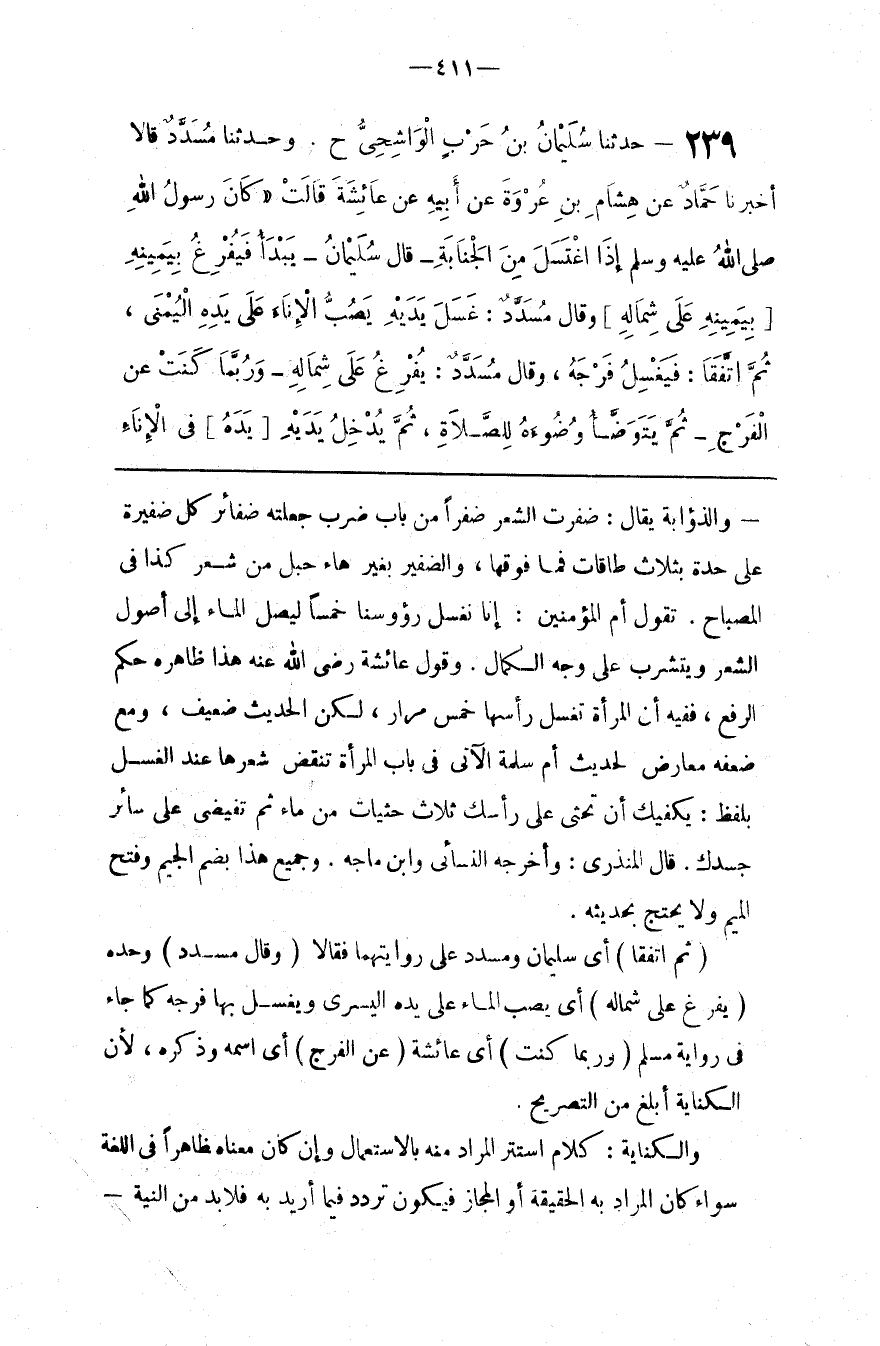 —٤١١—
٢٣٩ – حدثنا سُلَيْمَانُ بنُ حَرْبٍ الْوَاشِحِيُّ ح . وحـدثنا مُسَدَّدٌ قالا
أخبرنا حَمَّادٌ عن هِشَامِ بنِ عُرْوَةَ عن أَبِيهِ عن عَائِشَةَ قَالَتْ « كَانَ رسولُ اللهِ
صلى اللهُ عليه وسلم إِذَا اغْتَسَلَ مِنَ الْجَنَابَةِ – قال سُلَيْمَانُ – يَبْدَأُ فَيُفْرِغُ بِيَمِينِهِ
[ بِيَمِينِهِ عَلَى شِمَالِهِ ] وقال مُسَدَّدٌ : غَسَلَ يَدَيْهِ يَصُبُّ الْإِنَاءَ عَلَى يَدِهِ الْيُمْنَى ،
ثُمَّ اتَّفَقَا : فَيَغْسِلُ فَرْجَهُ ، وقال مُسَدَّدٌ : يُفْرِغُ عَلَى شِمَالِهِ – وَرُبَّمَا كَنَتْ عن
الْفَرْجِ – ثُمَّ يَتَوَضَّـأُ وُضُوءَهُ لِلصَّـلَاةِ ، ثُمَّ يُدْخِلُ يَدَيْهِ [ يَدَهُ ] فى الْإِنَاءِ
– والذؤابة يقال : ضفرت الشعر ضفراً من باب ضرب جعلته ضفائر كل ضفيرة
على حدة بثلاث طاقات فمـا فوقها ، والضفير بغير هاء حبل من شـعر كذا فى
المصباح . تقول أم المؤمنين : إنا نغسل رؤوسنا خمساً ليصل المـاء إلى أصول
الشعر ويتشرب على وجه الـكمال . وقول عائشة رضى الله عنه هذا ظاهره حكم
الرفع ، ففيه أن المرأة تغسل رأسها خمس مرار ، لـكن الحديث ضعيف ، ومع
ضعفه معارض لحديث أم سلمة الآتى فى باب المرأة تنقض شعرها عند الغسـل
بلفظ : يكفيك أن تحثى على رأسك ثلاث حثيات من ماء ثم تفيضى على سائر
جسدك . قال المنذرى : وأخرجه النسائى وابن ماجه . وجميع هذا بضم الجيم وفتح
الميم ولا يحتج بحديثه .
( ثم اتفقا ) أى سليمان ومسدد على روايتهما فقالا ( وقال مسـدد ) وحده
( يفرغ على شماله ) أى يصب المـاء على يده اليسرى ويغسـل بها فرجه كما جاء
فى رواية مسلم ( وربما كنت ) أى عائشة ( عن الفرج ) أى اسمه وذكره ، لأن
الـكناية أبلغ من التصريح .
والـكناية : كلام استتر المراد منه بالاستعمال وإن كان معناه ظاهراً فى اللغة
سواء كان المراد به الحقيقة أو المجاز فيكون تردد فيما أريد به فلابد من النية –